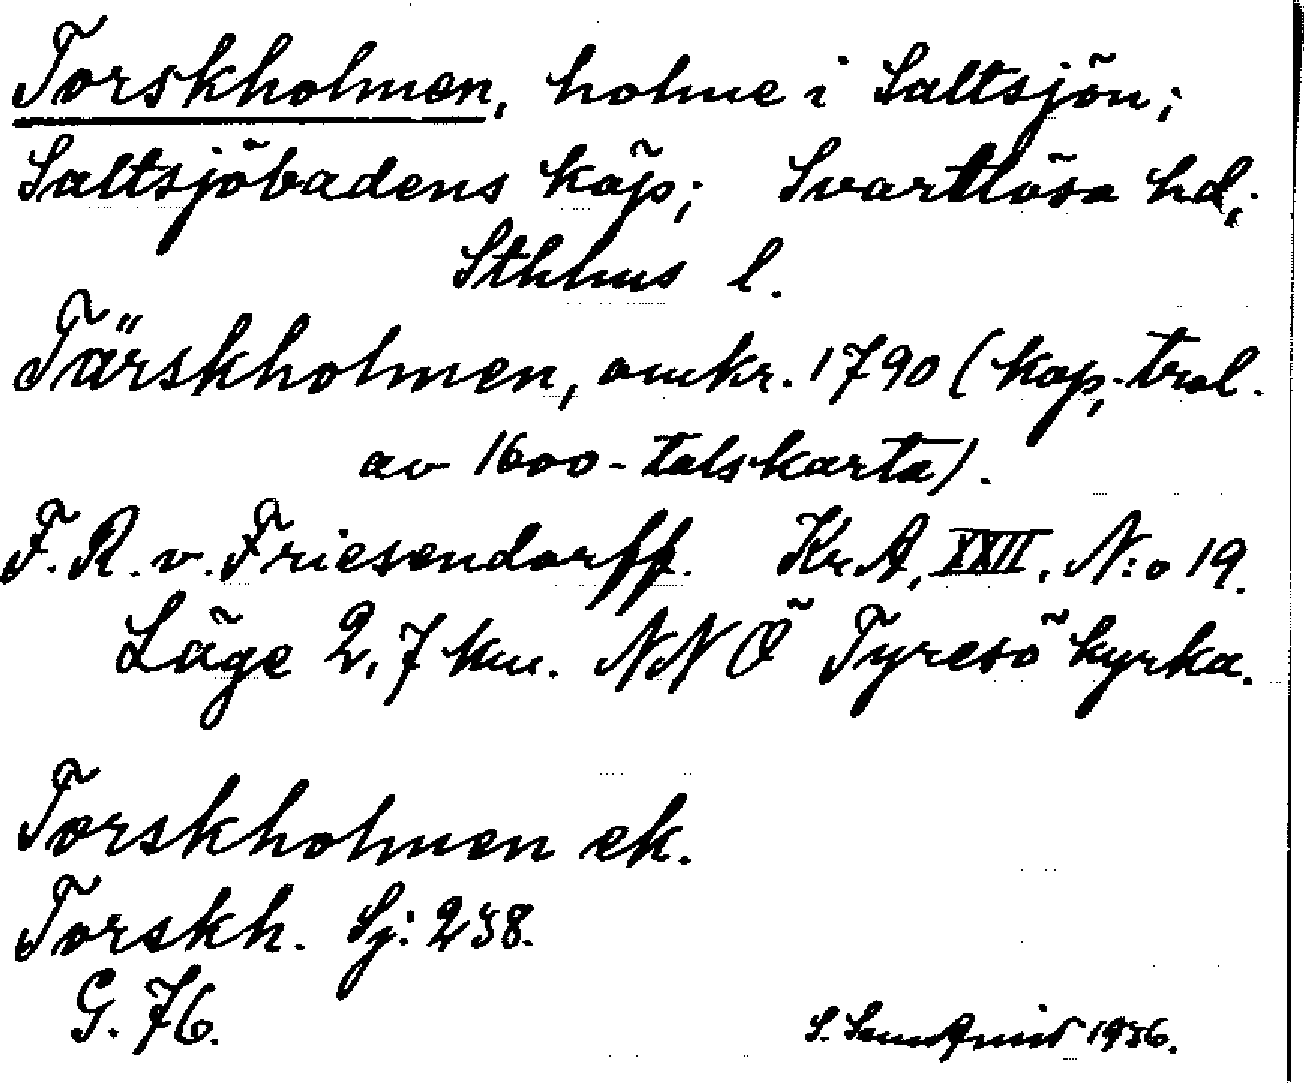 Torskholmen, holme i Saltsjön;
Saltsjöbadens köp; Svartlösa hd;
Sthlms l.
Tärskholmen, omkr. 1790 (kop. trol.
av 1600-talskarta).
F. R. v. Friesendorff. Kr. A. XXII. N:o 19.
Läge 2,7 km. NNÖ Tyresö kyrka.
Torskholmen ek.
Torskh. Sj: 238.
G. 76.
S. 1936.